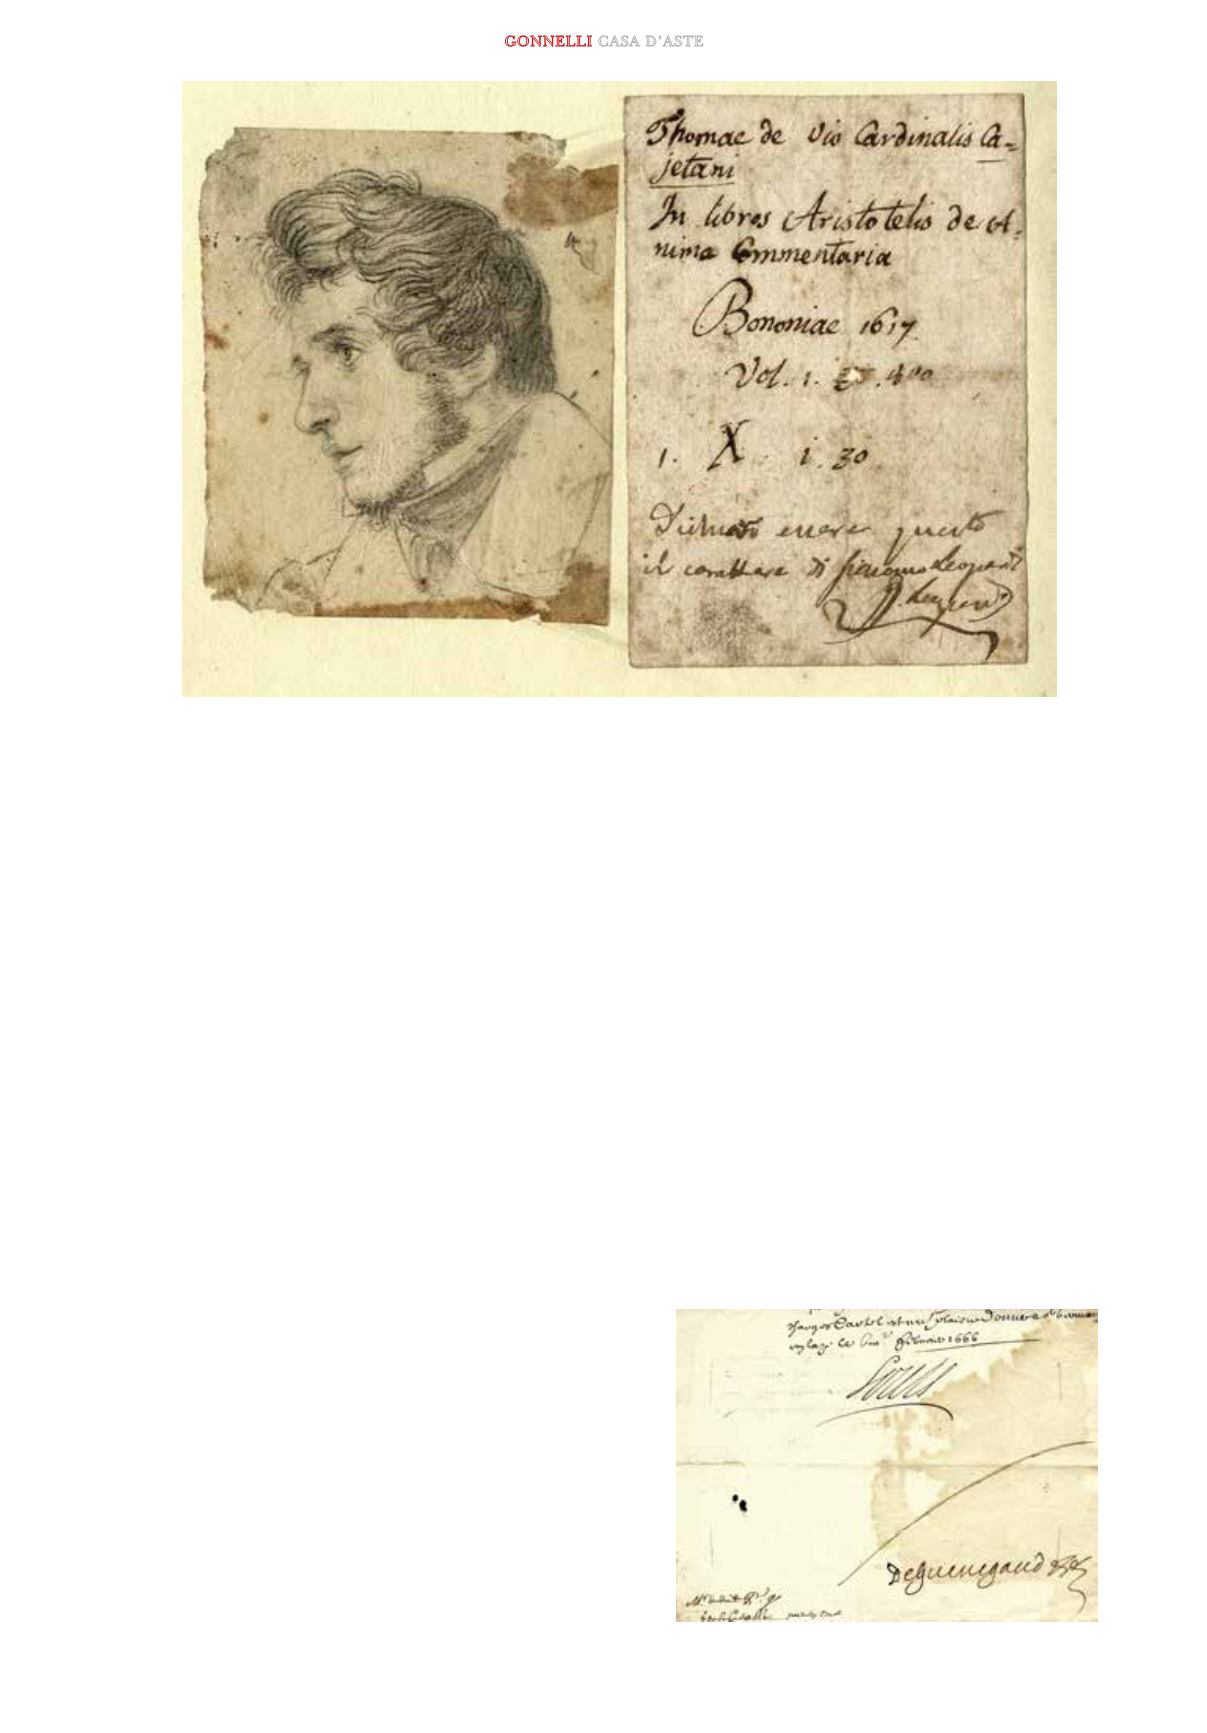 GONNELLI CASA D'ASTE
Thomae de Vio Cardinalis Ca=
jetani
In libros Aristotelis de A-
nima Commentaria
Bononiae 1617
Vol. 1.
1. X. 1. 30
Dichiaro essere questo
il carattere di Giacomo Leopardi
enregr le
febvrier 1666
Louis
DeGuenegaud